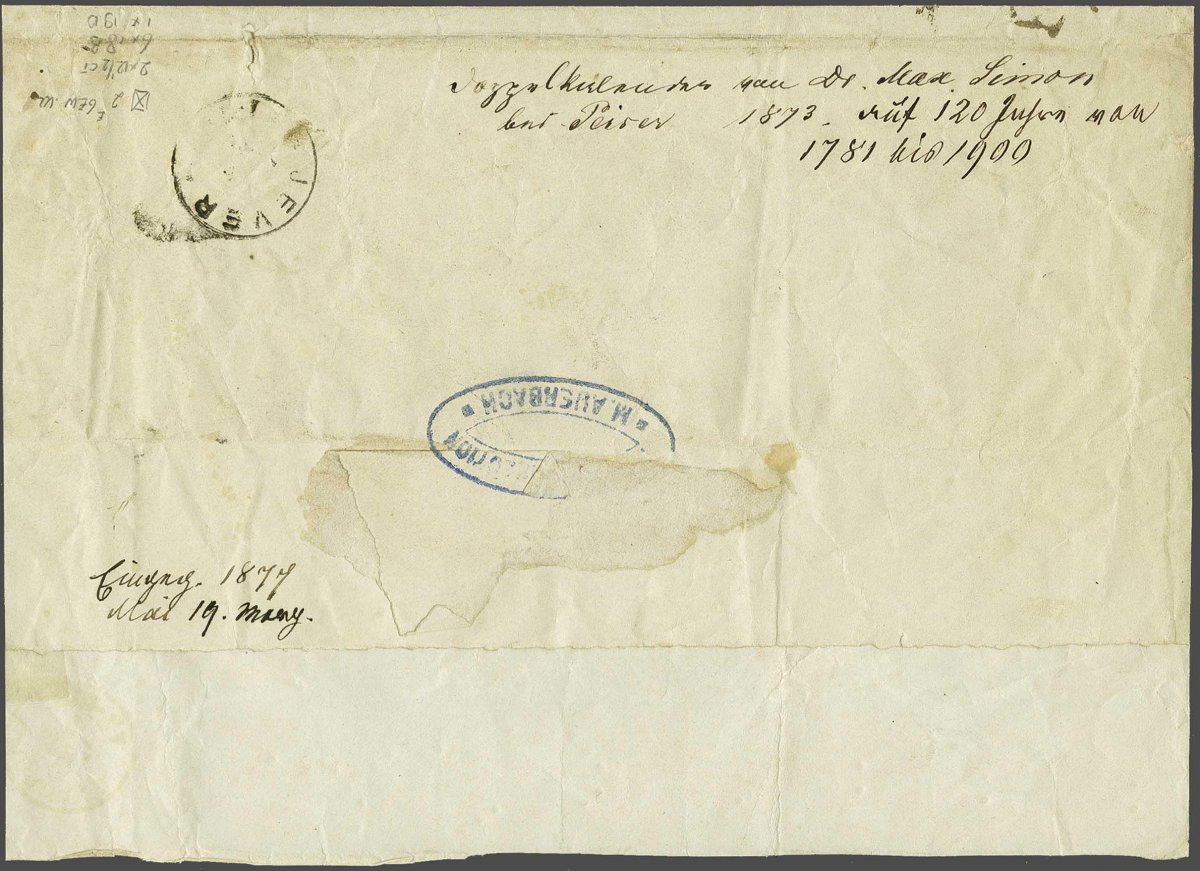 Doppelkalender von Dr. Max Simon
bei Peiser 1873. auf 120 Jahre von
1781 bis 1900
JEVER
* M. AUERBACH. *
Eingeg. 1877
Mai 19. Morg.
2 x 12½ ct
6 x 18B
1 x 19D